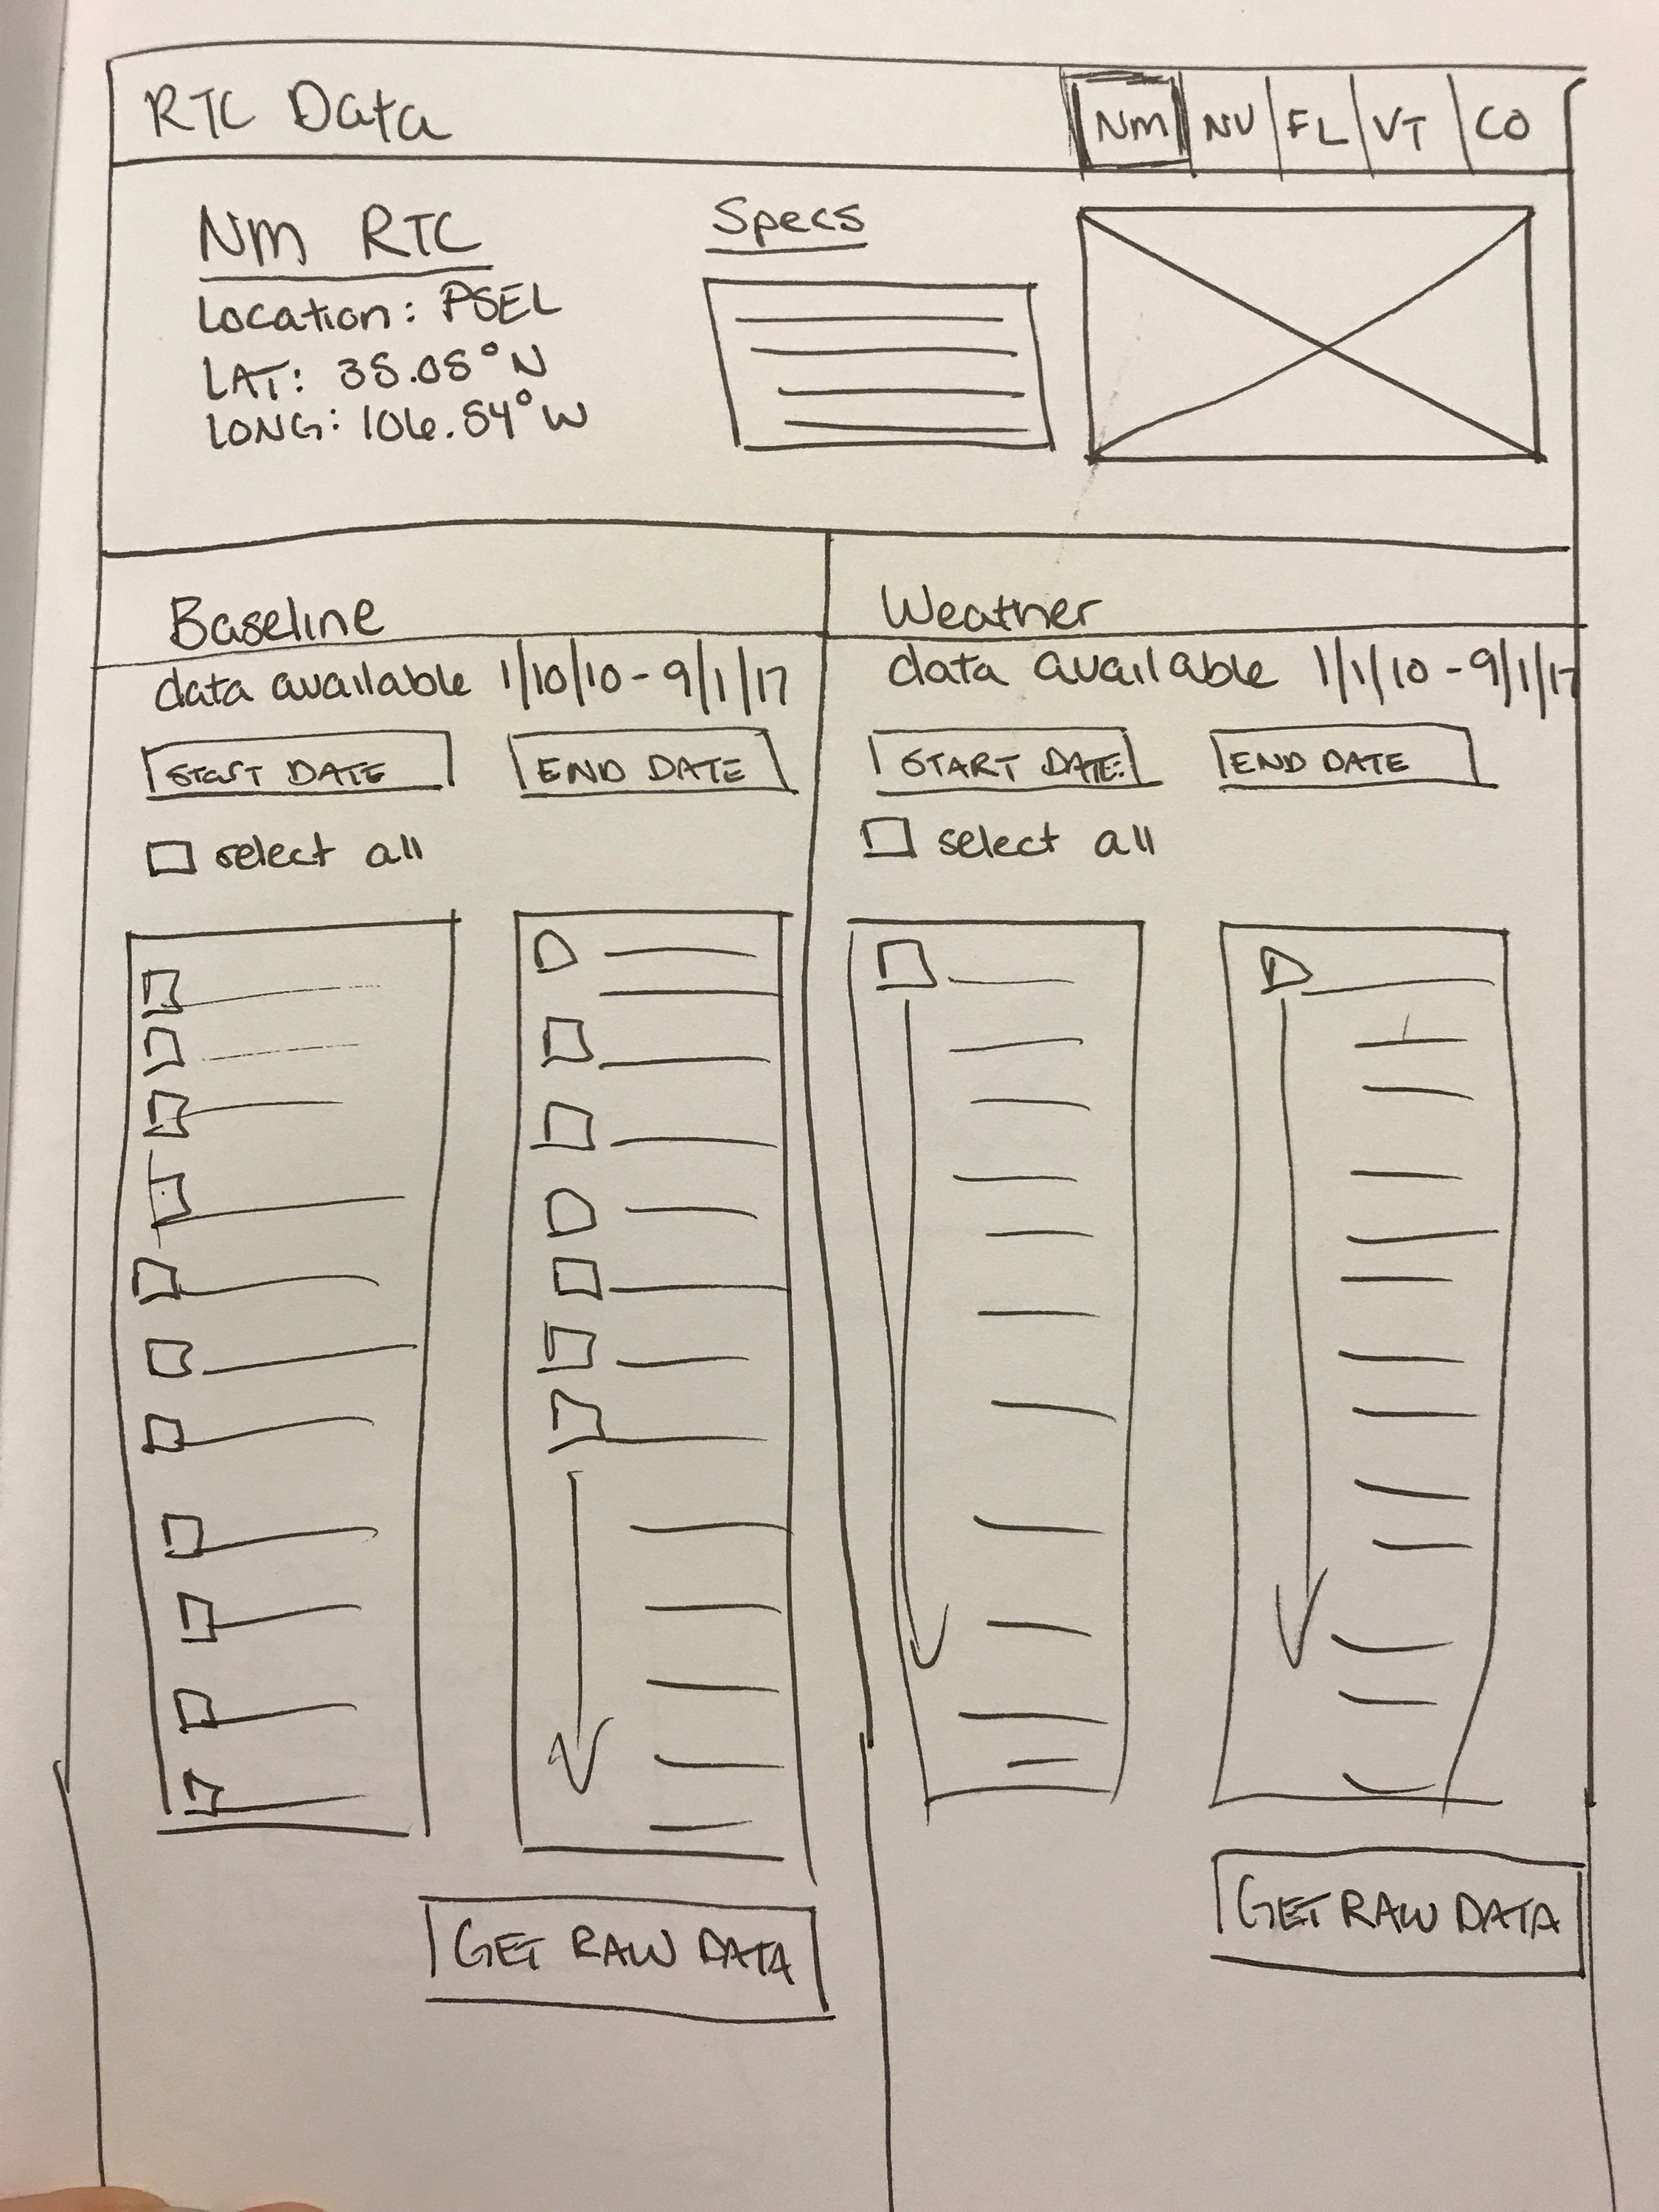 RTC Data
Nm NV FL VT CO
Nm RTC
Location: PSEL
LAT: 35.05°N
LONG: 106.54°W
Specs
Baseline
data available 1/10/10 - 9/1/17
START DATE END DATE
select all
GET RAW DATA
Weather
data available 1/1/10 - 9/1/17
START DATE: END DATE
select all
GET RAW DATA